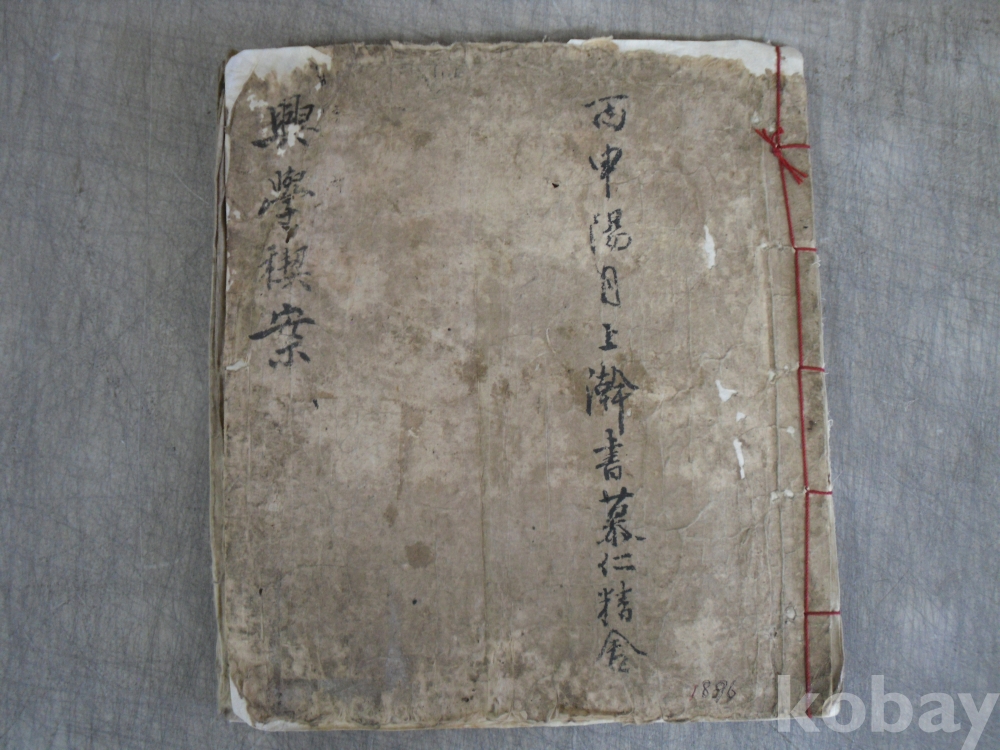 丙申陽月上澣書慕仁精舍
興學稧案
1896
kobay